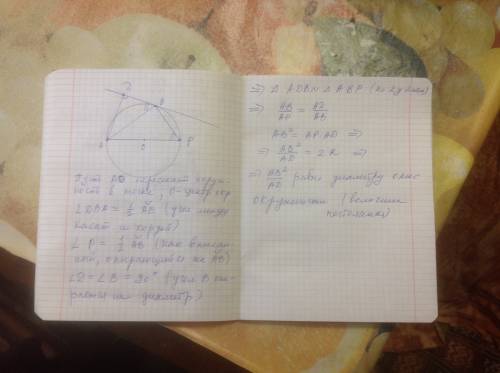 D
B
A
O
P
Пусть AO пересекает окруж-
ность в точке P, O-центр окр
∠DBA = 1/2 ◡AB (угол между
касат и хордой)
∠P = 1/2 ◡AB (как вписан-
ный, опирающийся на AB)
∠D = ∠B = 90° (угол B опи-
рается на диаметр)
⇒ △ADB ∾ △ABP (по 2 углам)
⇒ AB/AP = AD/AB
AB² = AP·AD ⇒
⇒ AB²/AD = 2R ⇒
⇒ AB²/AD равен диаметру опис
окружности (величине
постоянной)